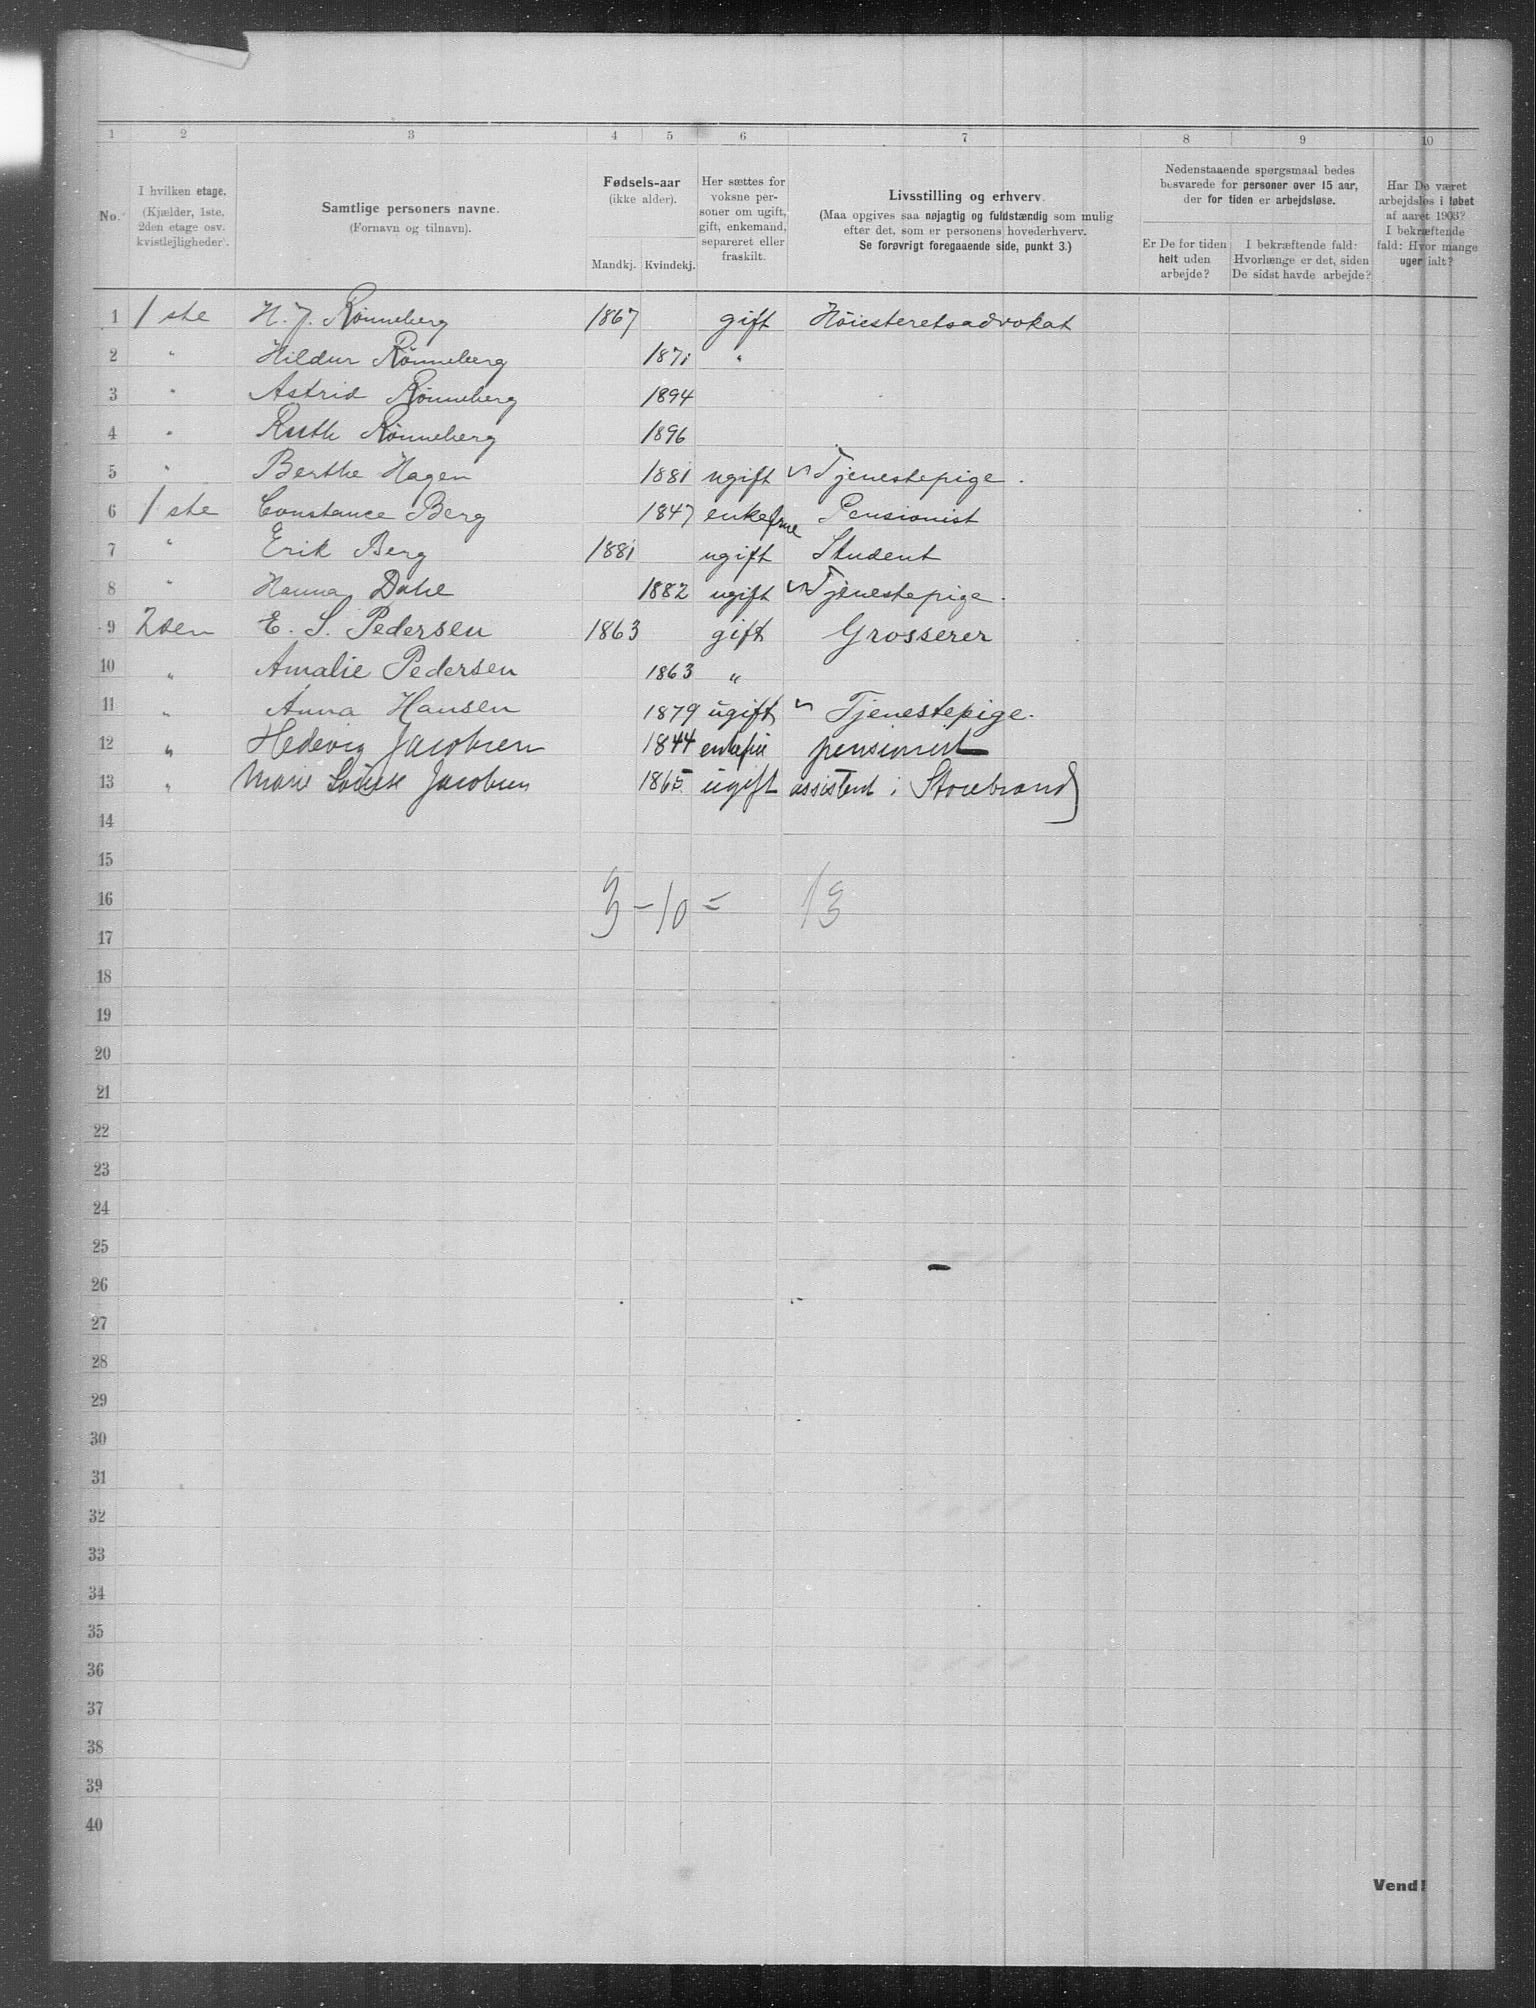 1 2 3 4 5 6 7 8 9 10
No. I hvilken etage. (Kjælder, 1ste, 2den etage osv. kvistleiligheder). Samtlige personers navne. (Fornavn og tilnavn). Fødsels-aar (ikke alder). Mandkj. Kvindekj. Her sættes for voksne personer om ugift, gift, enkemand, separeret eller fraskilt. Livsstilling og erhverv. (Maa opgives saa nøjagtig og fuldstændig som mulig efter det, som er personens hovederhverv. Se forøvrigt foregaaende side, punkt 3.) Nedenstaaende spørgsmaal bedes besvarede for personer over 15 aar, der for tiden er arbejdsløse. Er De for tiden helt uden arbejde? I bekræftende fald: Hvorlænge er det, siden De sidst havde arbejde? Har De været arbejdsløs i løbet af aaret 1903? I bekræftende fald: Hvor mange uger ialt?
1 1ste H. J. Rønneberg 1867 gift Høiesteretsadvokat
2 " Hildur Rønneberg 1871 "
3 " Astrid Rønneberg 1894
4 " Ruth Rønneberg 1896
5 " Berthe Hagen 1881 ugift Tjenestepige.
6 1ste Constance Berg 1847 enkefrue Pensionist
7 " Erik Berg 1881 ugift Student
8 " Hanna Dahl 1882 ugift Tjenestepige.
9 2den E. S. Pedersen 1863 gift Grosserer
10 " Amalie Pedersen 1863 "
11 " Anna Hansen 1879 ugift Tjenestepige.
12 " Hedevig Jacobsen 1844 enkefru pensionist
13 " Marie Louise Jacobsen 1865 ugift assistent i Storebrand
14
15
16 3 - 10 = 13
17
18
19
20
21
22
23
24
25
26
27
28
29
30
31
32
33
34
35
36
37
38
39
40
Vend!